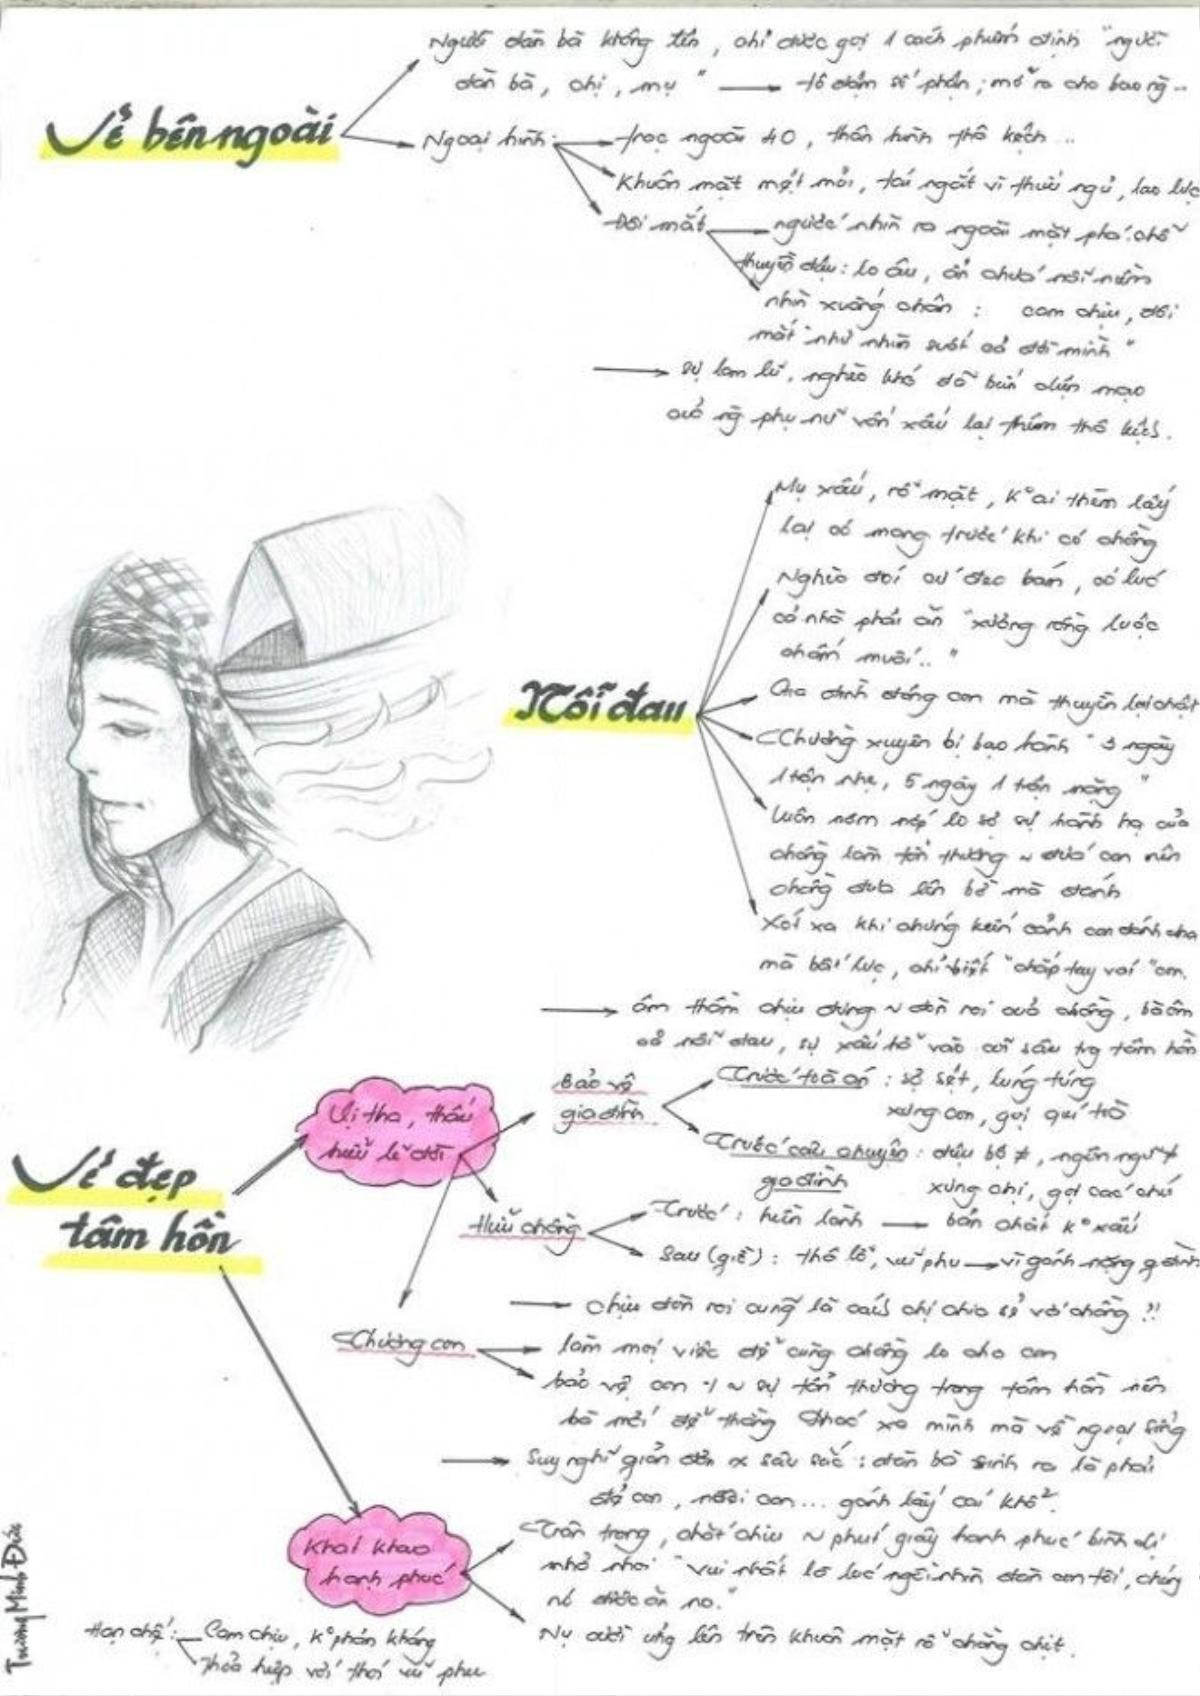 Vẻ bên ngoài
Người đàn bà không tên, chỉ được gọi 1 cách phiếm định "người
đàn bà, chị, mụ" → tô đậm số phận; mở ra cho bao ng...
Ngoại hình
trạc ngoài 40, thân hình thô kệch...
Khuôn mặt mệt mỏi, tái ngắt vì thức ngủ, lao lực
Đôi mắt
ngước nhìn ra ngoài mặt phá: chỗ
thuyền đậu: lo âu, ẩn chứa nỗi niềm
nhìn xuống chân : cam chịu, đôi
mắt "như nhìn suốt cả đời mình"
→ sự lam lũ, nghèo khó đã biến diện mạo
của ng phụ nữ vốn xấu lại thêm thô kệch.
Nỗi đau
Mụ xấu, rỗ mặt, k° ai thèm lấy
lại có mang trước khi có chồng
Nghèo đói cứ đeo bám, có lúc
cả nhà phải ăn "xương rồng luộc
chấm muối.."
Gia đình đông con mà thuyền lại chật
Thường xuyên bị bạo hành "3 ngày
1 trận nhẹ, 5 ngày 1 trận nặng"
Luôn nơm nớp lo sợ sự hành hạ của
chồng làm tổn thương ~ đứa con nên
chồng đưa lên bờ mà đánh
Xót xa khi chứng kiến cảnh con đánh cha
mà bất lực, chỉ biết "chắp tay vái" con.
→ âm thầm chịu đựng ~ đòn roi của chồng, bà ôm
cả nỗi đau, sự xấu hổ vào cõi sâu trg tâm hồn
Vẻ đẹp
tâm hồn
Vị tha, thấu
hiểu lẽ đời
Bảo vệ
gia đình
Trước toà án : sợ sệt, lúng túng
xưng con, gọi quí toà
Trước câu chuyện : điệu bộ ≠, ngôn ngữ ≠
gia đình xưng chị, gọi các chú
Hiểu chồng
Trước : hiền lành → bản chất k° xấu
Sau (giờ) : thô lỗ, vũ phu → vì gánh nặng g.đình
→ Chịu đòn roi cũng là cách chị chia sẻ với chồng ?!
Thương con
làm mọi việc để cùng chồng lo cho con
bảo vệ con ~ sự tổn thương trong tâm hồn nên
bà mới để thằng Phác xa mình mà về ngoại sống
→ Suy nghĩ giản đơn x sâu sắc : đàn bà sinh ra là phải
đẻ con, nuôi con... gánh lấy cái khổ.
Khát khao
hạnh phúc
Trân trọng, chắt chiu ~ phút giây hạnh phúc bình dị
nhỏ nhoi "vui nhất là lúc ngồi nhìn đàn con tôi, chúng
nó được ăn no."
Nụ cười ửng lên trên khuôn mặt rỗ chằng chịt.
Hạn chế :
Cam chịu, k° phản kháng
Thoả hiệp với thói vũ phu
Trương Minh Đức